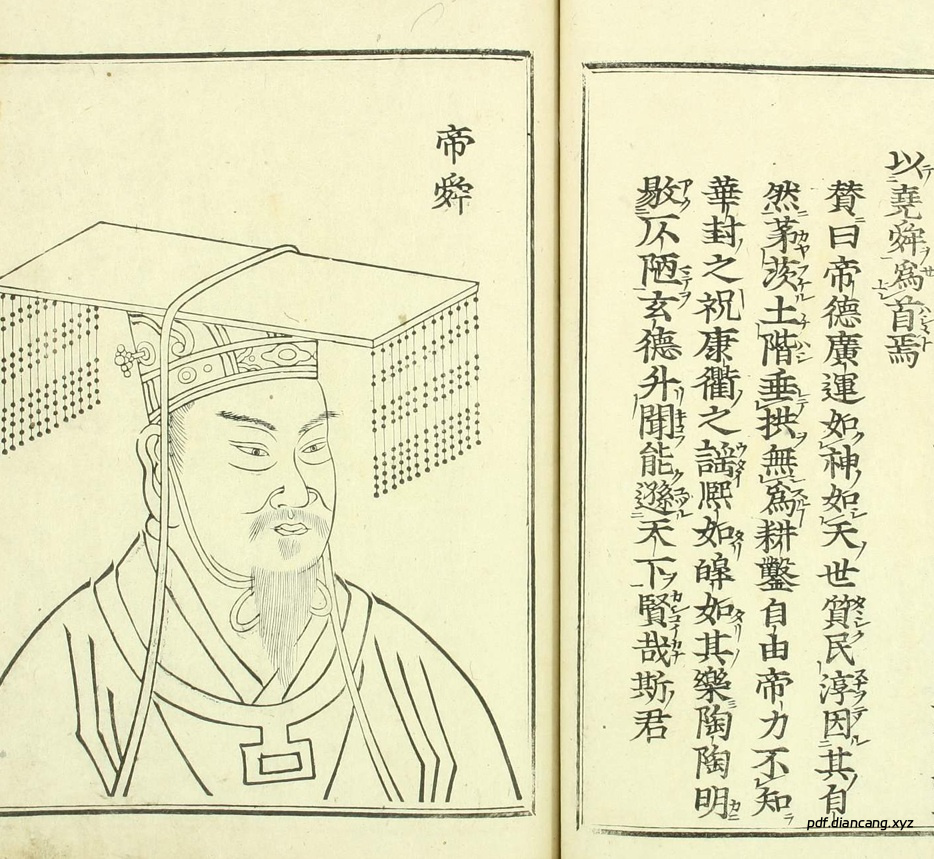 以堯舜爲首焉
賛曰帝德廣運如神如天世質民淳因其自
然茅茨土階垂拱無爲耕鑿自由帝力不知
華封之祝康衢之謡熈如皞如其樂陶陶明
敭仄陋玄德升聞能遜天下賢哉斯君
帝舜
pdf.diancang.xyz